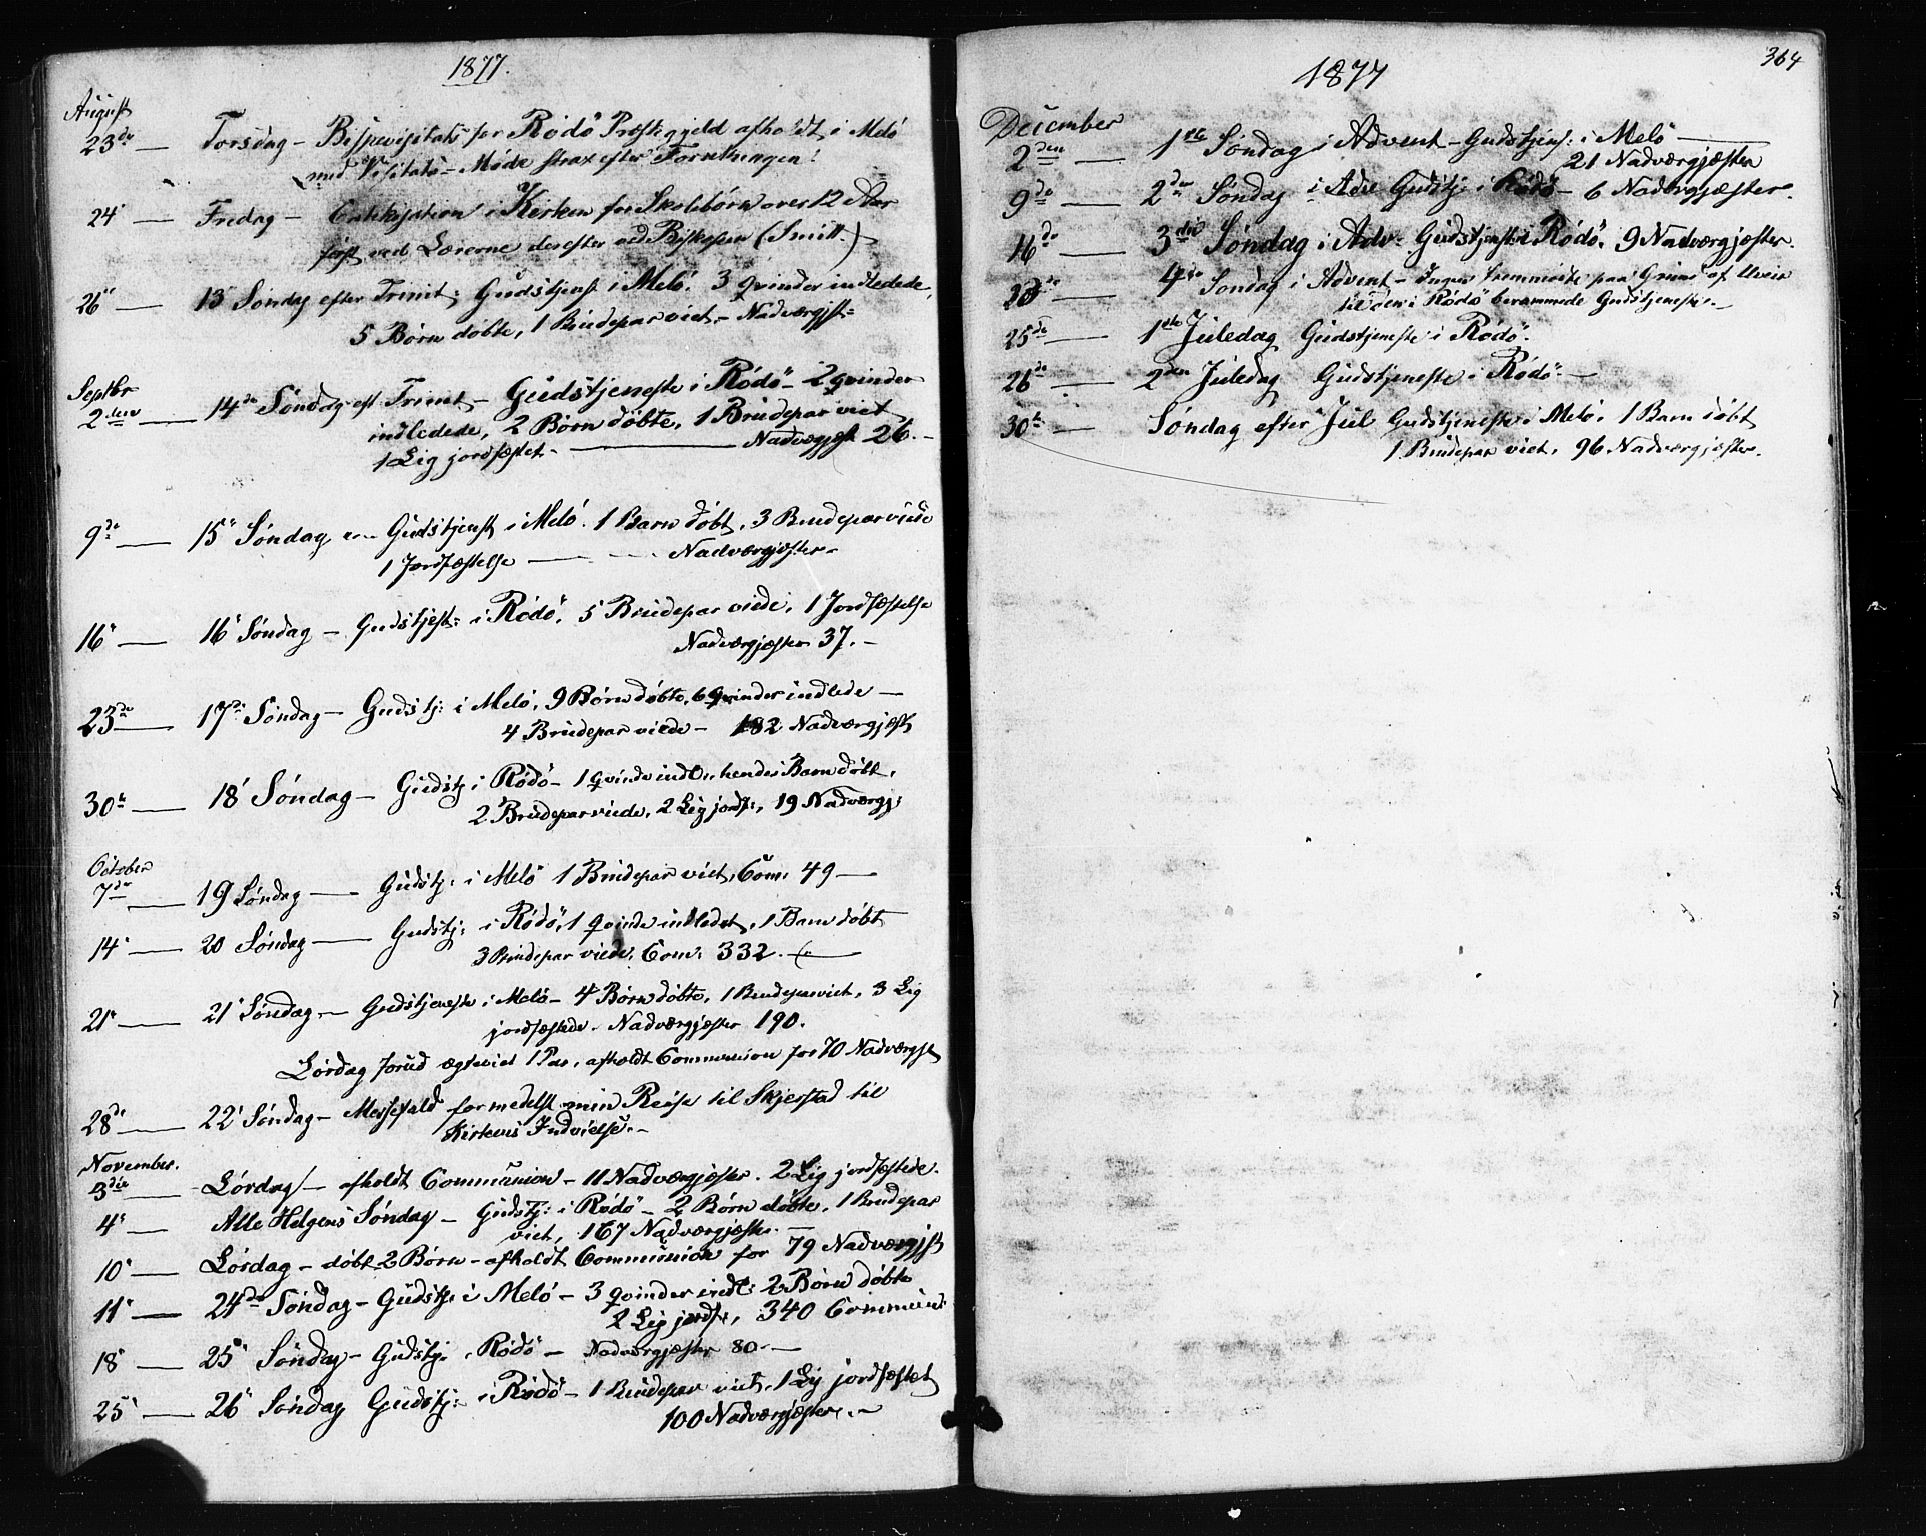 1877.
August
23de — Torsdag – Bispevisitats for Rödö Præstegjeld afholdt i Melö
med Visitats-Möde strax efter Forretningen.
24' — Fredag – Catekisation i Kirken for Skolebörn over 12 Aar
först ved Lærerne derefter ved Biskopen (Smitt.)
26" — 13' Söndag efter Trinit: Gudstjenst i Melö. 3 qvinder indledede,
5 Börn döbte, 1 Brudepar viet. – Nadvergjst=
Septbr
2den — 14de Söndag eft Trinit – Gudstjeneste i Rödö – 2 qvinder
indledede, 2 Börn döbte, 1 Brudepar viet
1 Lig jordfæstet. — Nadvergjest 26. –
9de — 15" Söndag Gudstjenst i Melö. 1 Barn döbt, 3 Brudepar viede
1 Jordfæstelse — Nadvergjester –
16" — 16' Söndag – Gudstjest: i Rödö. 5 Brudepar viede, 1 Jordfæstelse
Nadvergjester 37. –
23de — 17de Söndag – Gudstj: i Melö, 9 Börn döbte, 6 Qvinder indlede –
4 Brudepar viede – 182 Nadvergjæst
30te — 18' Söndag – Gudstj i Rödö – 1 qvinde indl., hendes Barn döbt,
2 Brudepar viede, 2 Lig jordf:, 19 Nadvergj:
October
7de — 19 Söndag — Gudstj: i Melö 1 Brudepar viet, Com: 49 —
14' — 20 Söndag — Gudstj: i Rödö, 1 qvinde indledet, 1 Barn döbt
3 Brudepar viede, Com: 332. —
21' — 21' Söndag – Gudstjeneste i Melö – 4 Börn döbte, 1 Brudepar viet, 3 Lig
jordfæstede. Nadvergjæster 190.
Lördag forud ægteviet 1 Par, afholdt Communion for 70 Nadvergjst
28de — 22' Söndag – Messefald formedelst min Reise til Skjerstad til
Kirkens Indvielse. –
November.
3die — Lördag – afholdt Communion – 11 Nadvergjester. 2 Lig jordfæstede.
4' — Alle Helgens Söndag – Gudstj: i Rödö – 2 Börn döbte, 1 Brudepar
viet, 167 Nadvergjæster.
10' — Lördag – döbt 2 Börn – afholdt Communion for 79 Nadvergjst
11' — 24de Söndag – Gudstj: i Melö – 3 qvinder indl: 2 Börn döbte
2 Lig jordf:, 340 Commun:
18' — 25' Söndag – Gudstj. i Rödö – Nadvergjæster 80. –
25' — 26' Söndag Gudstj: i Rödö – 1 Brudepar viet, 1 Lig jordfæstet
100 Nadvergjæster. –
364
1877
December
2den — 1ste Söndag i Advent – Gudstjenst: i Melö —
21 Nadvergjæster
9de — 2den Söndag i Adv Gudstj: i Rödö – 6 Nadvergjæster.
16de — 3die Söndag i Adv: Gudstjenst i Rödö. 9 Nadvergjæster.
23de — 4de Söndag i Advent – Ingen fremmödte paa Grund af Uveir
til den i Rödö berammede Gudstjeneste. –
25de — 1ste Juledag Gudstjeneste i Rödö.
26de — 2den Juledag Gudstjeneste i Rödö. –
30te — Söndag efter Jul Gudstjeneste i Melö. 1 Barn döbt
1 Brudepar viet, 96 Nadvergjæster.